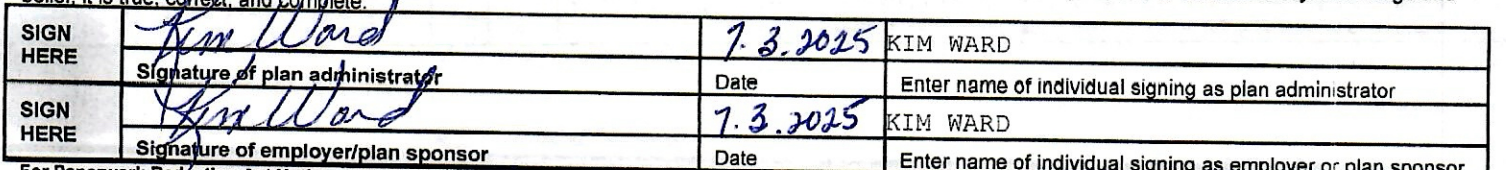 belief, it is true, correct, and complete.
SIGN HERE Kim Ward 7.3.2025 KIM WARD
Signature of plan administrator Date Enter name of individual signing as plan administrator
SIGN HERE Kim Ward 7.3.2025 KIM WARD
Signature of employer/plan sponsor Date Enter name of individual signing as employer or plan sponsor